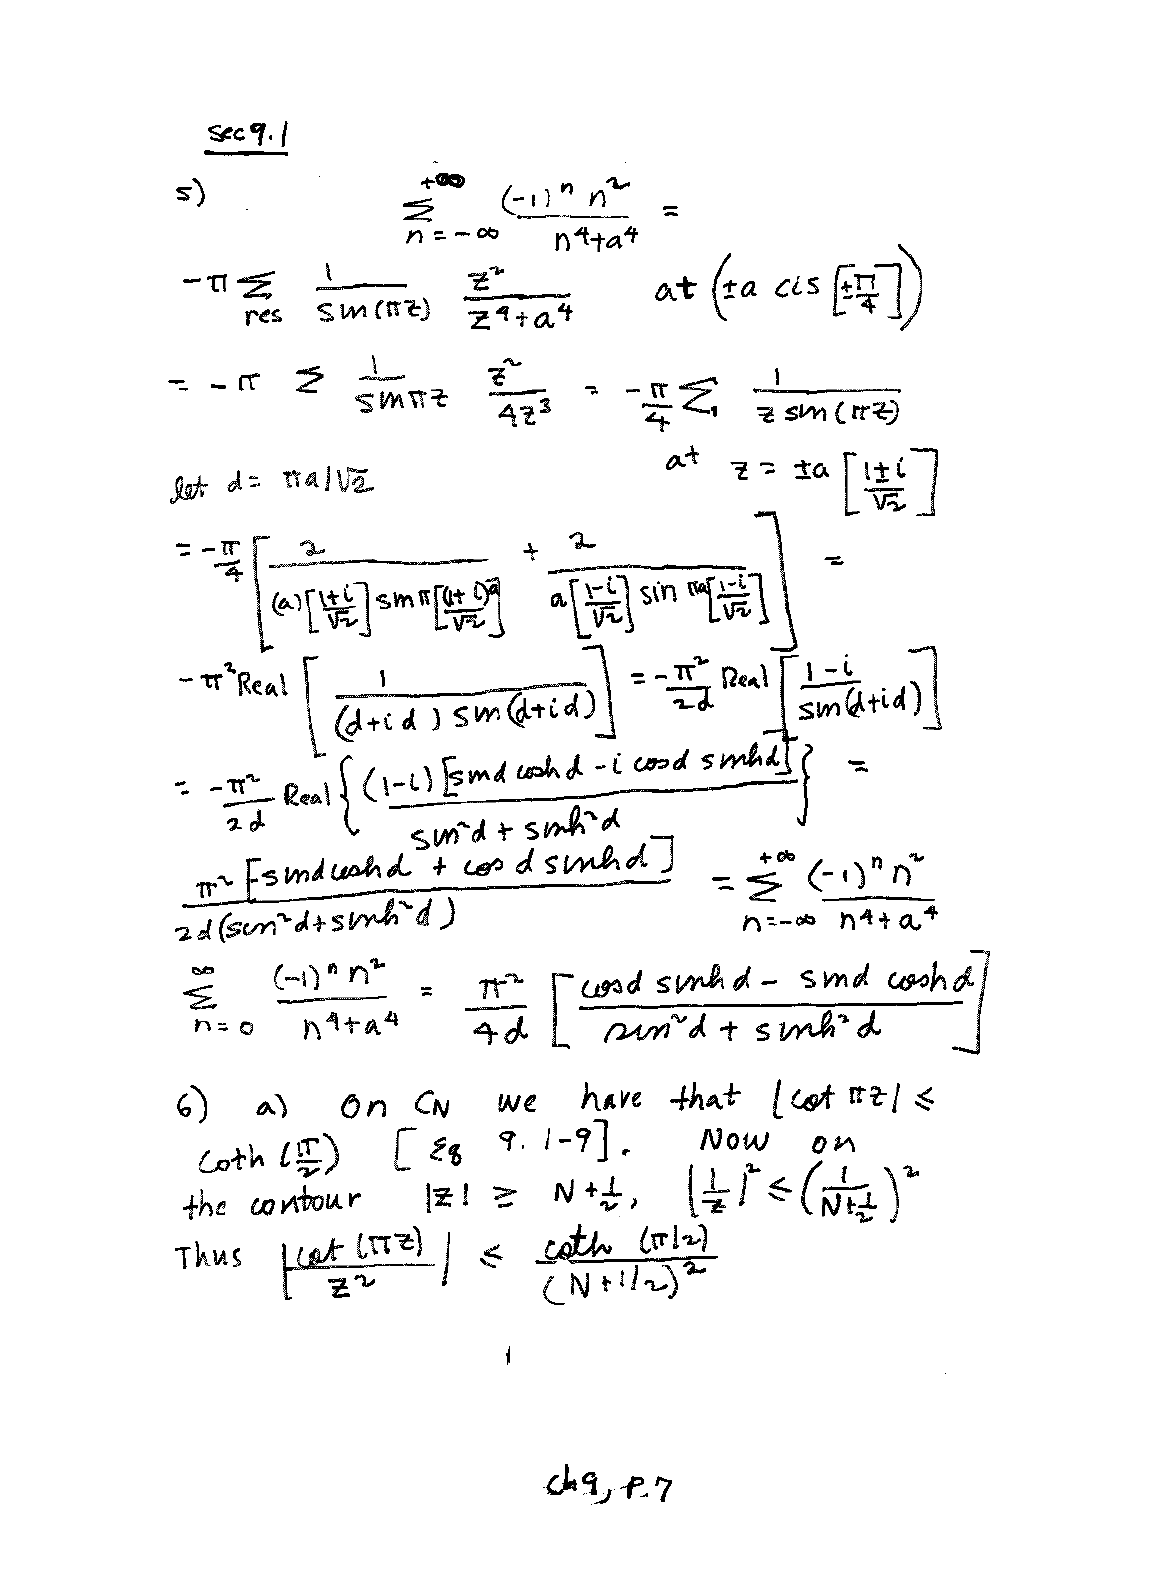 sec 9.1
5) \sum_{n=-\infty}^{+\infty} \frac{(-1)^n n^2}{n^4+a^4} =
-\pi \sum_{res} \frac{1}{sin(\pi z)} \frac{z^2}{z^4+a^4} at (\pm a cis [\pm\frac{\pi}{4}])
= -\pi \sum \frac{1}{sin \pi z} \frac{z^2}{4z^3} = -\frac{\pi}{4} \sum \frac{1}{z sin(\pi z)}
at z = \pm a [\frac{1 \pm i}{\sqrt{2}}]
let d = \pi a/\sqrt{2}
= -\frac{\pi}{4} [\frac{2}{(a)[\frac{1+i}{\sqrt{2}}] sin \pi [\frac{(1+i)a}{\sqrt{2}}]} + \frac{2}{a[\frac{1-i}{\sqrt{2}}] sin \pi a[\frac{1-i}{\sqrt{2}}]}] =
-\pi^2 Real [\frac{1}{(d+id) sin(d+id)}] = -\frac{\pi^2}{2d} Real [\frac{1-i}{sin(d+id)}]
= \frac{-\pi^2}{2d} Real {\frac{(1-i)[sin d cosh d - i cos d sinh d]}{sin^2 d + sinh^2 d}} =
\frac{\pi^2 [-sin d cosh d + cos d sinh d]}{2d (sin^2 d + sinh^2 d)} = \sum_{n=-\infty}^{+\infty} \frac{(-1)^n n^2}{n^4+a^4}
\sum_{n=0}^{\infty} \frac{(-1)^n n^2}{n^4+a^4} = \frac{\pi^2}{4d} [\frac{cos d sinh d - sin d cosh d}{sin^2 d + sinh^2 d}]
6) a) On C_N we have that |cot \pi z| \leq
coth (\frac{\pi}{2}) [Eq 9.1-9]. Now on
the contour |z| \geq N+\frac{1}{2}, |\frac{1}{z}|^2 \leq (\frac{1}{N+\frac{1}{2}})^2
Thus |\frac{cot(\pi z)}{z^2}| \leq \frac{coth(\pi/2)}{(N+1/2)^2}
1
ch9, p.7